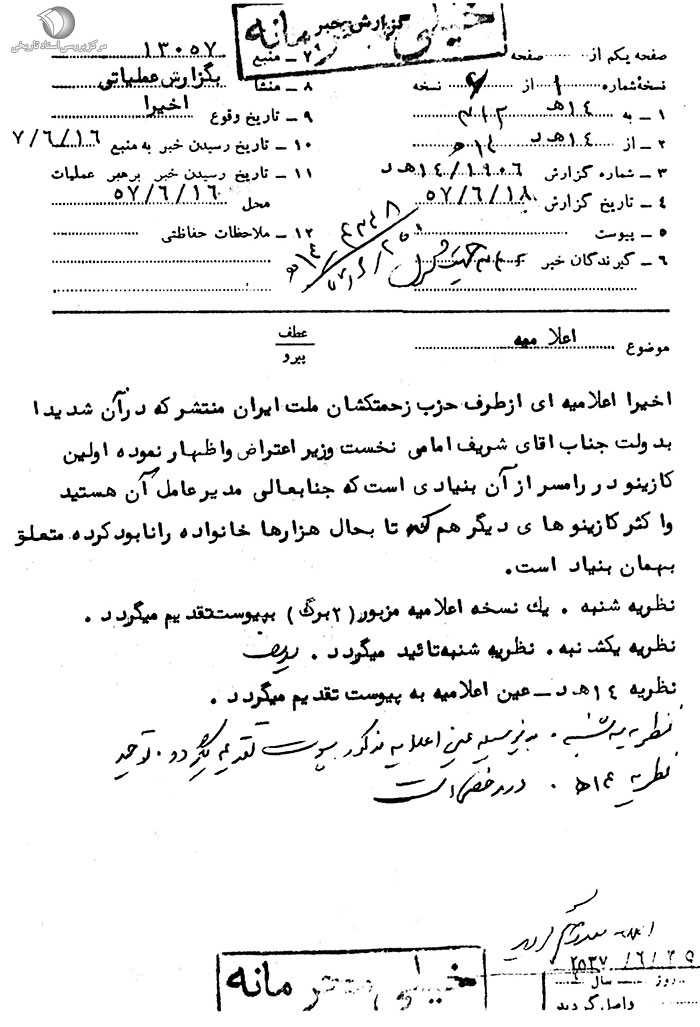 مرکز بررسی اسناد تاریخی
خیلی محرمانه
گزارش خبر
صفحه یکم از صفحه
نسخهٔ شماره ۱ از نسخه
۱ ـ به ۳۱۲ ۱۴هـ
۲ ـ از ۱۴هـ د
۳ ـ شماره گزارش ۱۴/۱۹۰۶هـ د
۴ ـ تاریخ گزارش ۵۷/۶/۱۸
۵ ـ پیوست
۶ ـ گیرندگان خبر
۷ ـ منبع ۱۳۰۵۷
۸ ـ منشأ بگزارش عملیاتی
۹ ـ تاریخ وقوع اخیرا
۱۰ ـ تاریخ رسیدن خبر به منبع ۷/۶/۱۶
۱۱ ـ تاریخ رسیدن خبر برهبر عملیات
محل ۵۷/۶/۱۶
۱۲ ـ ملاحظات حفاظتی
موضوع اعلامیه
عطف
پیرو
اخیرا اعلامیه ای ازطرف حزب زحمتکشان ملت ایران منتشر که درآن شدیدا
بدولت جناب اقای شریف امامی نخست وزیر اعتراض واظهار نموده اولین
کازینو در رامسر از آن بنیادی است که جنابعالی مدیرعامل آن هستید
واکثر کازینو های دیگر هم که تا بحال هزارها خانواده رانابود کرده متعلق
بهمان بنیاد است.
نظریه شنبه . یك نسخه اعلامیه مزبور (۲برگ) بپیوست تقدیم میگردد .
نظریه یکشنبه . نظریه شنبه تائید میگردد .
نظریه ۱۴هـ د ـ عین اعلامیه به پیوست تقدیم میگردد .
نظریه سه شنبه . بدینوسیله عین اعلامیه مذکور بپیوست تقدیم میگردد . توحید
نظریه ۱۴هـ .
۲۵۳۷/۶/۲۵
روز سال
واصل گردید
خیلی محرمانه